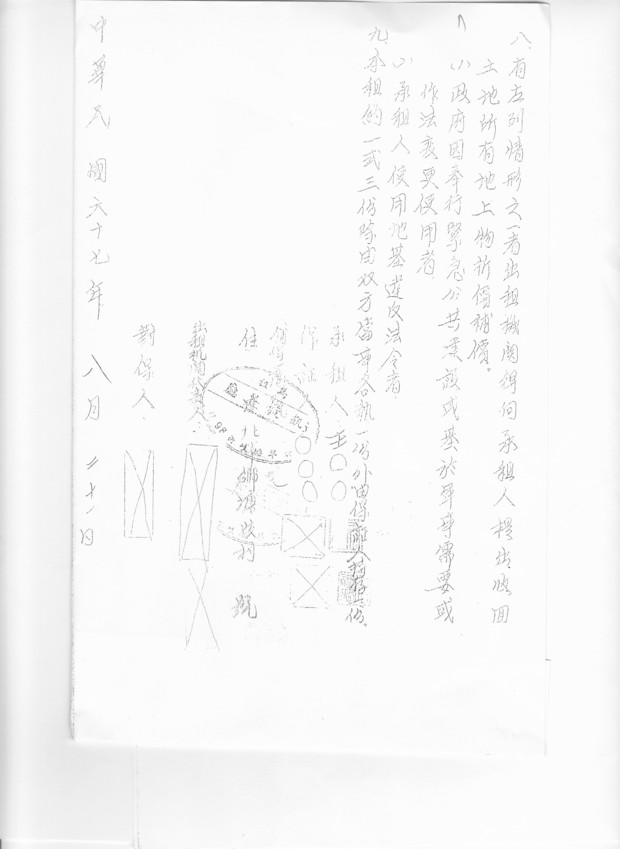 八、有左列情形之一者出租機關得向承租人提出收回
土地所有地上物折價補償。
(1)政府因奉行緊急公共業設或基於軍事需要或
作法變更使用者
(2)承租人使用地基違反法令者
九、本租約一式三份除由双方當事各執一份外由保証人執存一份。
承租人 王〇〇
保証人〇〇
住 北 鄉 村 號
出租机關代表人
對保人
中華民國六十七年 八月 二十一日